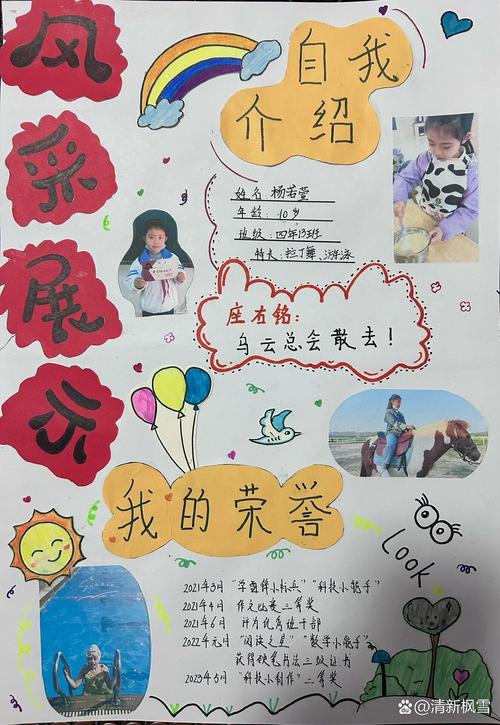 风采展示
自我
介绍
姓名：杨若萱
年龄：10岁
班级：四年13班
特长：拉丁舞 游泳
座右铭：
乌云总会散去！
我的荣誉
Look
2021年3月“学习小标兵”“科技小能手”
2021年4月 作文比赛二等奖
2021年6月 评为优秀班干部
2022年元月“阅读之星”“数学小能手”
获得硬笔书法三级证书
2023年5月“科技小制作”二等奖
百家号@清新枫雪